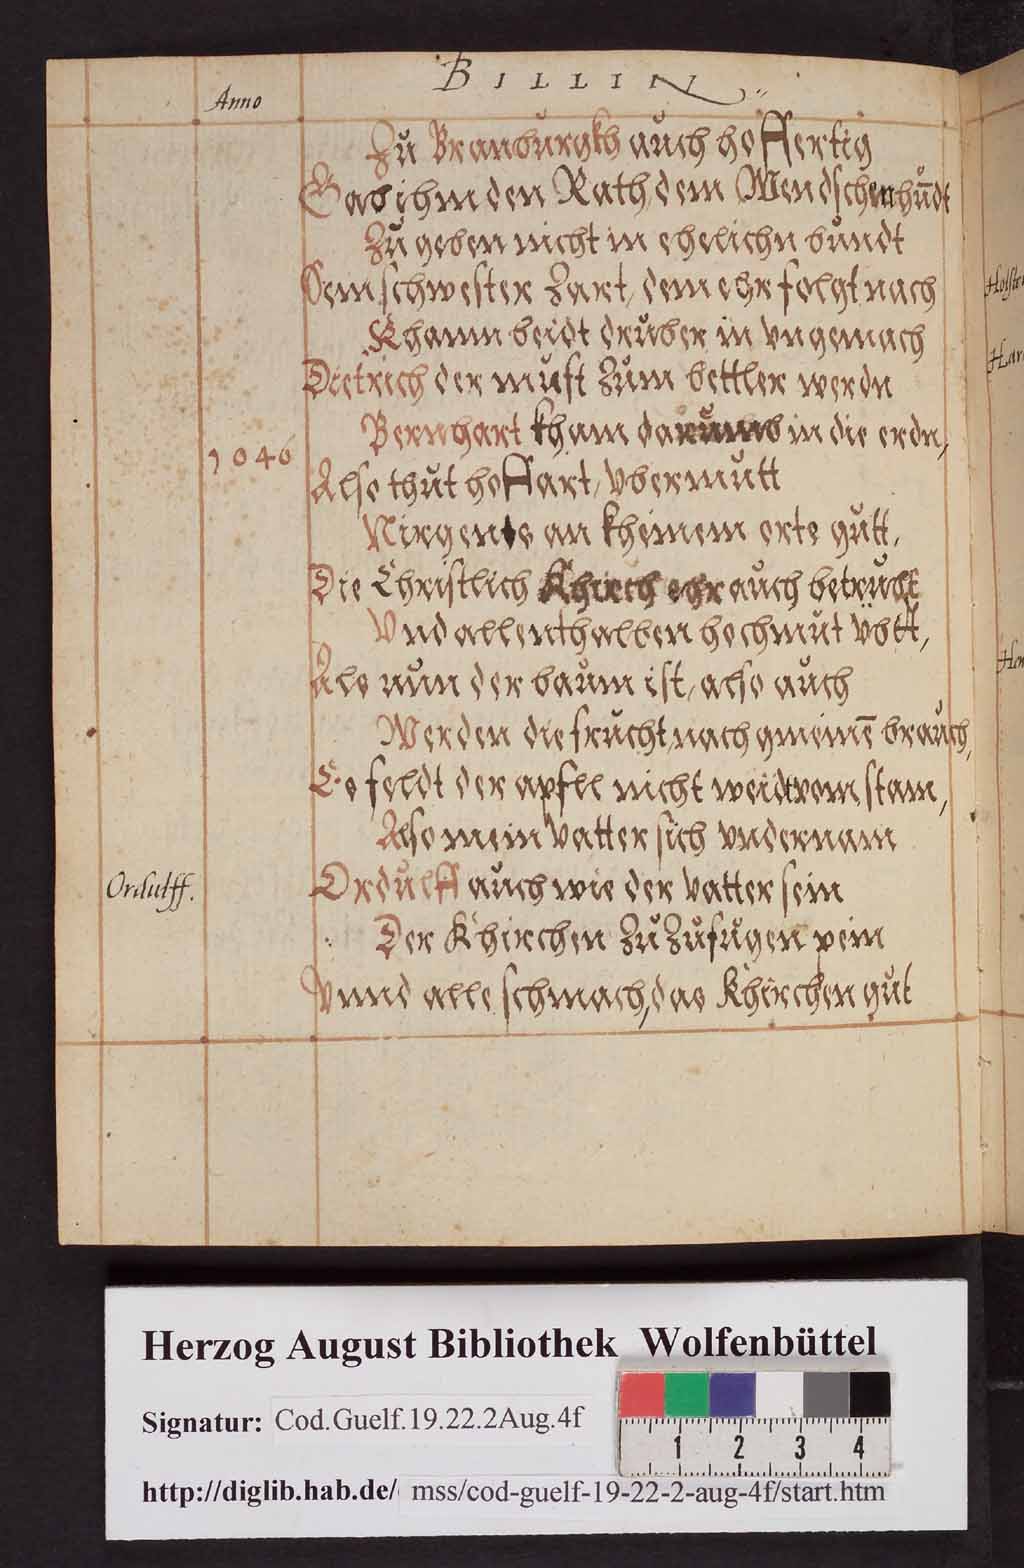 BILLIN
Anno
Zu Branburgkh auch hoffertig
Gab ihm den Rath, dem Wendschen hundt
Zu geben nicht in ehelichn bundt
Sein schwester Zart, dem ehr folgt nach
Khamn beidt druber in vngemach
Dietrich der must Zum bettler werdn
Bernhart kham darumb in die erdn,
1046
Also thut hoffart, vbermutt
Nirgends an kheinem orte gutt,
Die Christlich Khirch ehr auch betrubt
Vnd allenthalben hochmut vbtt,
Als nun der baum ist, also auch
Werden die frucht, nach gmeinē brauch,
Es feldt der apfll nicht weidt vom stam,
Also mein Vatter sich vndernam
Ordulff.
Ordulff auch wie der vatter sein
Der Khirchen Zu Zufugen pein
Vnnd alle schmach, das Khirchen gut
Herzog August Bibliothek Wolfenbüttel
Signatur: Cod.Guelf.19.22.2Aug.4f
1 2 3 4
http://diglib.hab.de/ mss/cod-guelf-19-22-2-aug-4f/start.htm